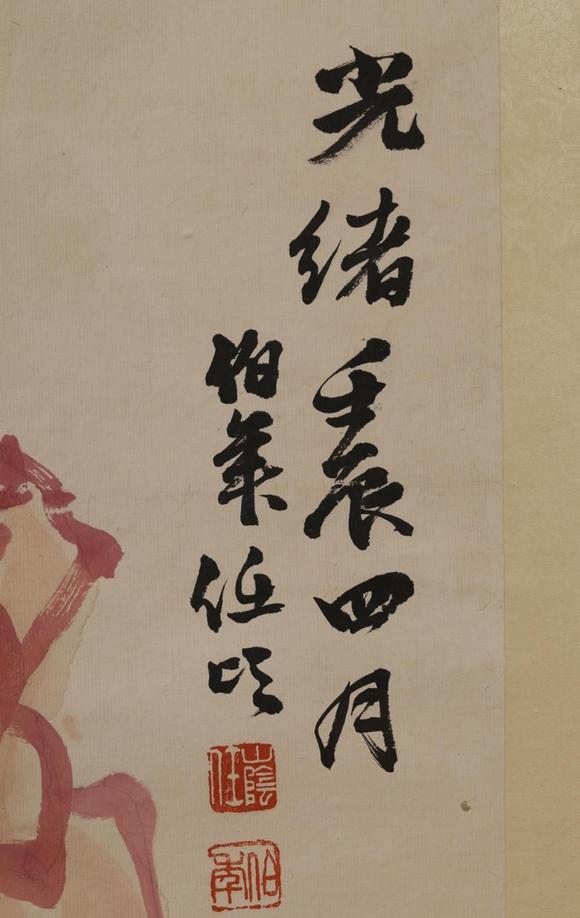 光緒壬辰四月
伯年任頤
山陰任
伯年